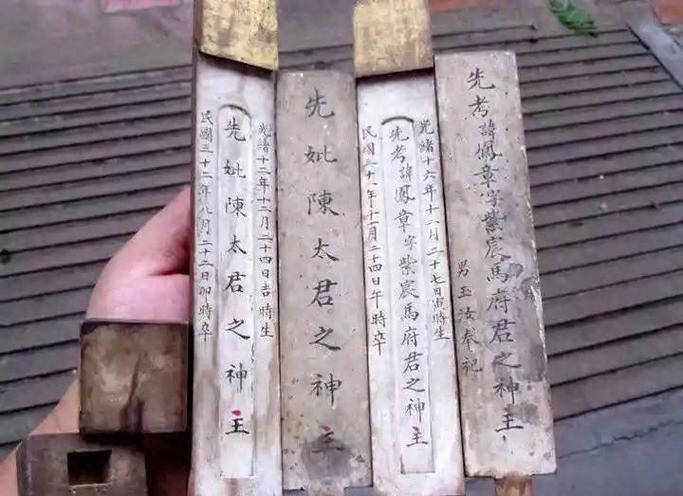 先考諱鳳章字紫宸馬府君之神主
男玉汝奉祀
光緒十六年十一月二十七日寅時生
先考諱鳳章字紫宸馬府君之神主
民國三十年十一月二十四日午時卒
先妣陳太君之神主
光緒十二年十二月二十四日吉時生
先妣陳太君之神主
民國三十二年八月二十二日卯時卒